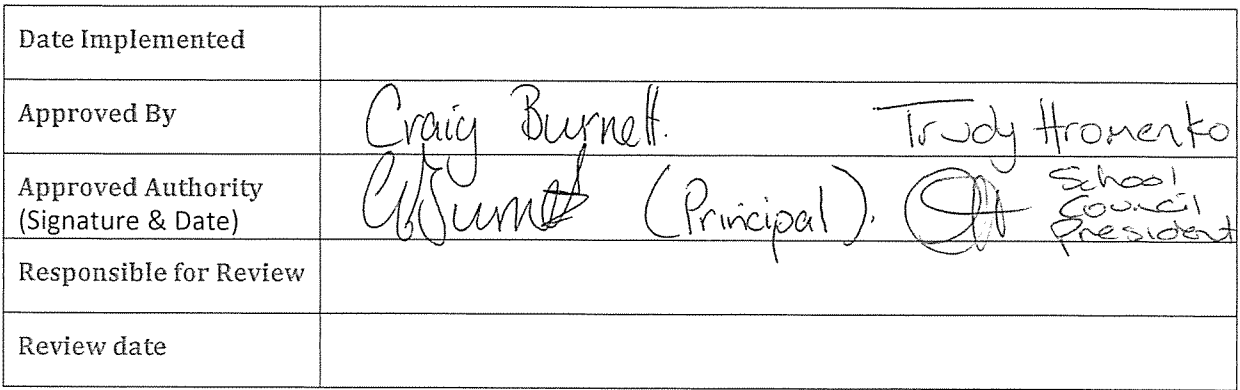 Date Implemented
Approved By
Craig Burnett. Trudy Hromenko
Approved Authority
(Signature & Date)
CBurnett (Principal). School
Council
President
Responsible for Review
Review date